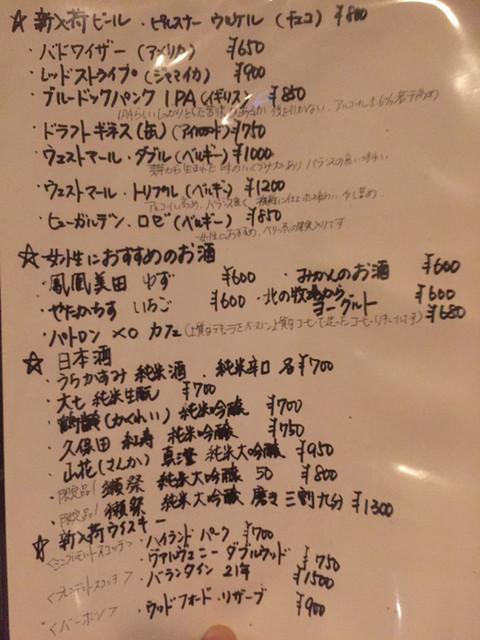 ☆ 新入荷ビール・ピルスナー ウルケル (チェコ) ¥800
・バドワイザー (アメリカ) ¥650
・レッドストライプ (ジャマイカ) ¥900
・ブルードックパンク IPA (イギリス) ¥850
IPAらしいしっかりとした苦味 アルコール 6% 若干高め
・ドラフトギネス (缶) (アイルランド) ¥750
・ウェストマール・ダブル (ベルギー) ¥1000
バランスの良い味わい
・ウェストマール・トリプル (ベルギー) ¥1200
アルコール高め、バランス良く
・ヒューガルデン・ロゼ (ベルギー) ¥850
女性にお すすめ、
☆ 女性におすすめのお酒
・鳳凰美田 ゆず ¥600 ・みかんのお酒 ¥600
・やたがらす いちご ¥600 ・北の牧場から ヨーグルト ¥600
・パトロン XO カフェ ¥680
☆ 日本酒
・うらかすみ 純米酒 . 純米辛口 各¥700
・大七 純米生酛 ¥700
・鶴齢 (かくれい) 純米吟醸 ¥700
・久保田 紅寿 純米吟醸 ¥750
・山花 (さんか) 真澄 純米大吟醸 ¥950
限定品! 獺祭 純米大吟醸 50 ¥800
限定品! 獺祭 純米大吟醸 磨き 三割九分 ¥1300
☆ 新入荷ウイスキー
<シングルモルトスコッチ> ・ハイランド パーク ¥700
・ヴァルヴェニー ダブルウッド ¥750
<ブレンデットスコッチ> ・バランタイン 21年 ¥1500
<バーボン> ・ウッドフォード・リザーブ ¥900